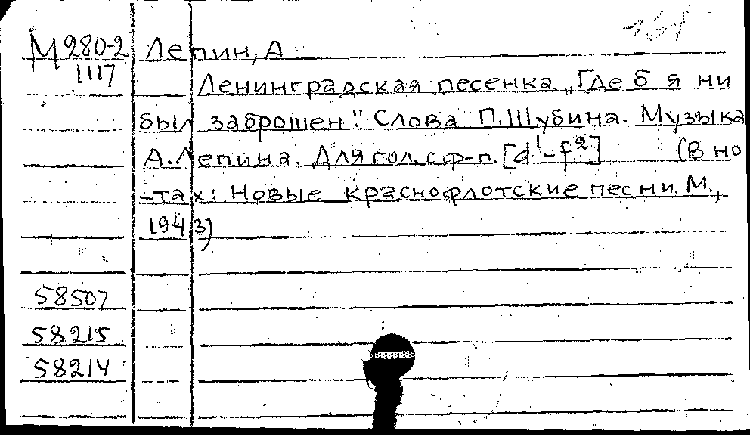 М280-2 Лепин, А
1117
Ленинградская песенка „Где б я ни
был заброшен". Слова П. Шубина. Музыка
А. Лепина. Для гол. с ф-п. [d¹-f²] (В но
-тах: Новые краснофлотские песни. М.,
1943)
58507
58215
58214